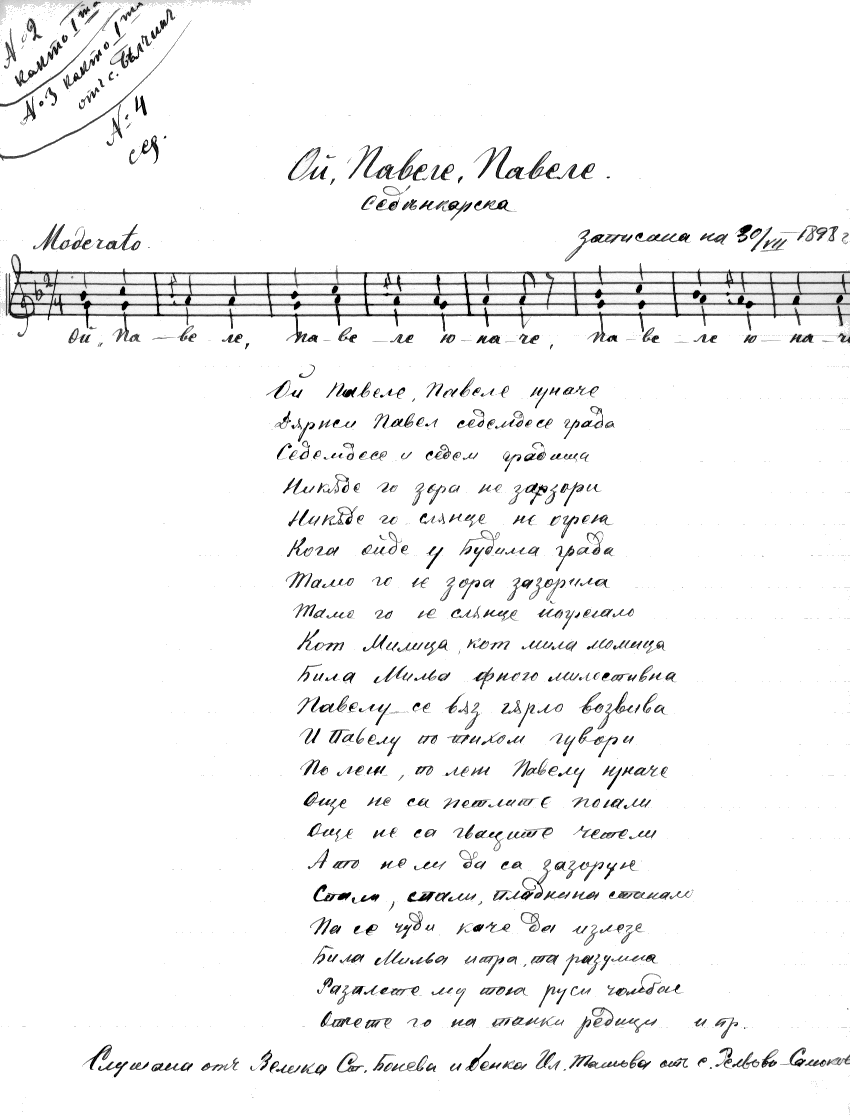 № 2
както I та
№ 3 както I та
отъ с. Вълчинъ
№ 4
сед.
Ой, Павеле, Павеле.
Седѣнкарска
Moderato.
записана на 30/VII 1898 г
2/4
Ой, Па-ве ле, па-ве-ле ю-на-че, па-ве-ле ю-на-че
Ой Павеле, Павеле юначе
Държи Павел седемдесе града
Седемдесе и седем градища
Никѫде го зора не зазори
Никѫде го слънце не огрея
Кога ойде у Будима града
Тамо го е зора зазорила
Тамо го е слънце
Кот Милица, кот мила момица
Била Милва много милостивна
Павелу се вѫз гърло возвива
И Павелу по тихом гувори
По лет, по лет Павелу юначе
Още не са петлите погали
Още не са гващите четели
А то не ли да са зазоруе
Стали, стали, пладнина станало
Па се чуди каче да излезе
Била Милва итра, та разумна
Разплете му тоя руси чомбас
Отчете го на танки редици и пр.
Слушана отъ Велика Ст. Бонева и Денка Ил. Ташова отъ с. Рельово-Самоков